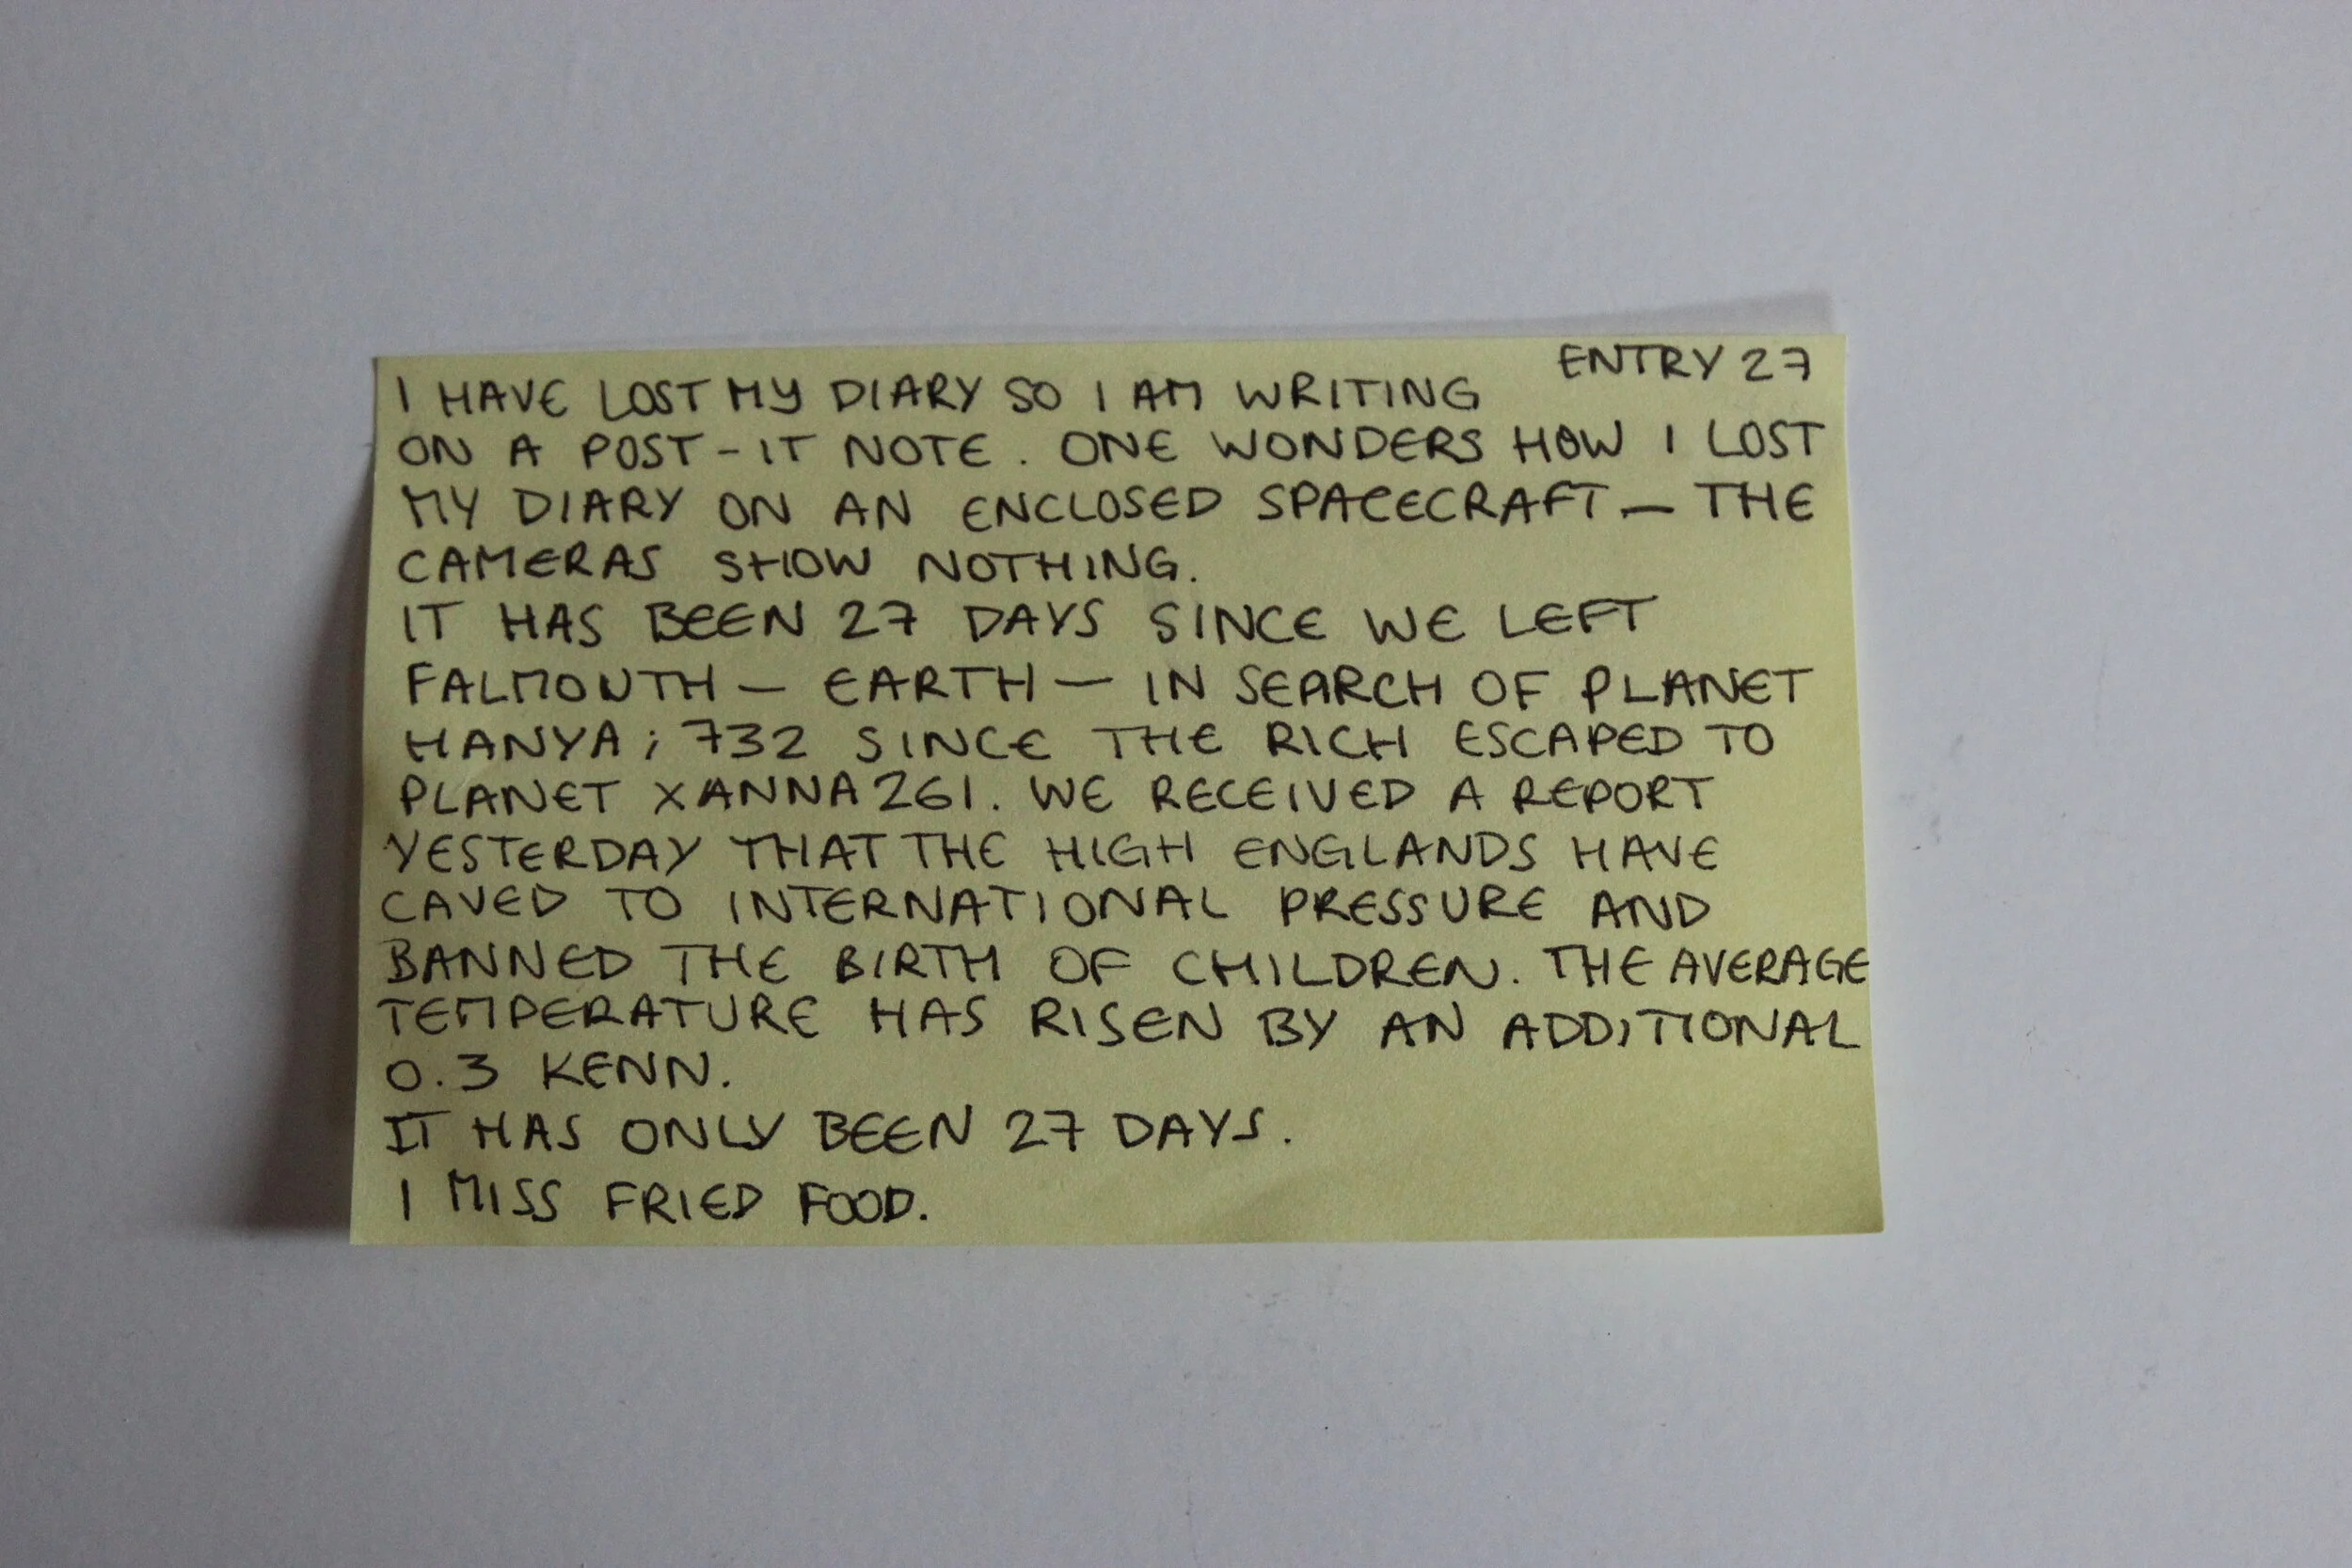 ENTRY 27
I HAVE LOST MY DIARY SO I AM WRITING
ON A POST-IT NOTE. ONE WONDERS HOW I LOST
MY DIARY ON AN ENCLOSED SPACECRAFT — THE
CAMERAS SHOW NOTHING.
IT HAS BEEN 27 DAYS SINCE WE LEFT
FALMOUTH — EARTH — IN SEARCH OF PLANET
HANYA; 732 SINCE THE RICH ESCAPED TO
PLANET XANNA261. WE RECEIVED A REPORT
YESTERDAY THAT THE HIGH ENGLANDS HAVE
CAVED TO INTERNATIONAL PRESSURE AND
BANNED THE BIRTH OF CHILDREN. THE AVERAGE
TEMPERATURE HAS RISEN BY AN ADDITIONAL
0.3 KENN.
IT HAS ONLY BEEN 27 DAYS.
I MISS FRIED FOOD.